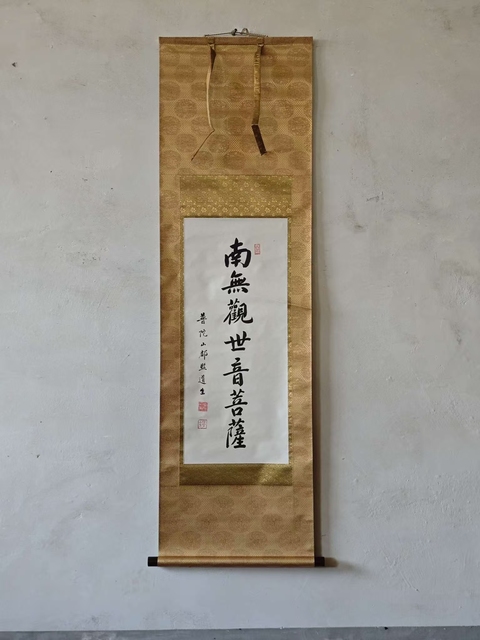 南無觀世音菩薩
普陀山